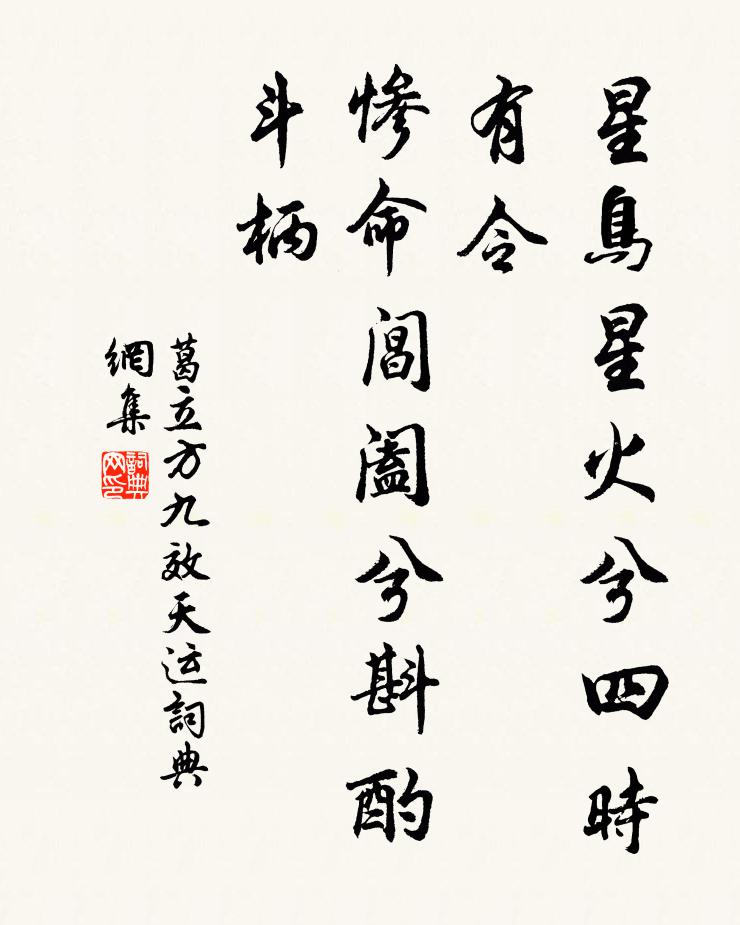 星鳥星火兮四時
有令
慘命閶闔兮斟酌
斗柄
葛立方九效天运詞典
網集
詞典
网印